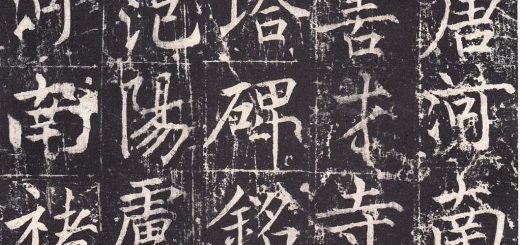 唐河南
善才寺
塔碑銘
范陽盧
河南褚